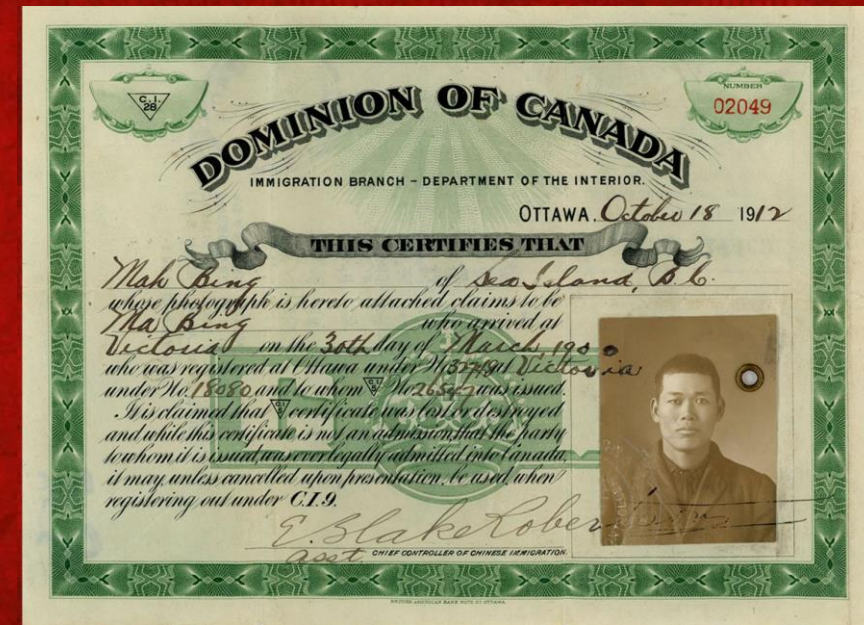 C.I.
28
NUMBER
02049
DOMINION OF CANADA
IMMIGRATION BRANCH – DEPARTMENT OF THE INTERIOR.
OTTAWA, October 18 1912
THIS CERTIFIES THAT
Mah Bing of Sea Island, B.C.
whose photograph is hereto attached claims to be
Ma Bing who arrived at
Victoria on the 30th day of March 1900
who was registered at Ottawa under No at Victoria
under No. 18080 and to whom No was issued.
It is claimed that certificate was lost or destroyed
and while this certificate is not an admission that the party
to whom it is issued, was ever legally admitted into Canada,
it may, unless cancelled upon presentation, be used when
registering out under C.I.9.
E. Blake Robertson
asst. CHIEF CONTROLLER OF CHINESE IMMIGRATION.
BRITISH AMERICAN BANK NOTE CO OTTAWA